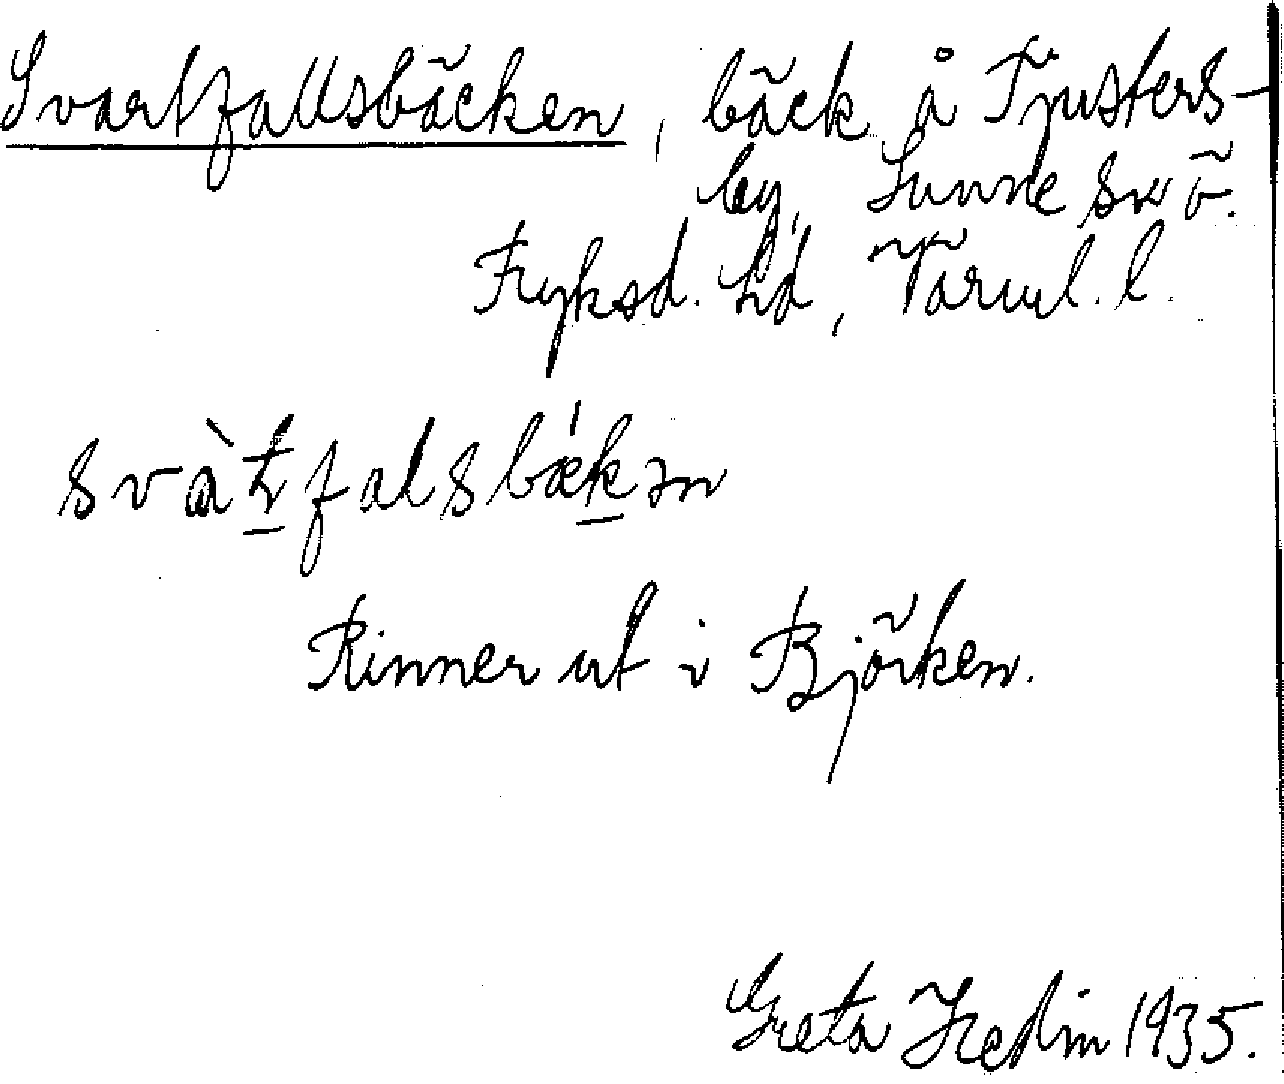 Svartfallsbäcken, bäck å Tjusters-
by, Sunne sn ö.
Fryksd. hd, Värml. l.
svàtfalsbækən
Rinner ut i Björken.
Greta Hedin 1935.